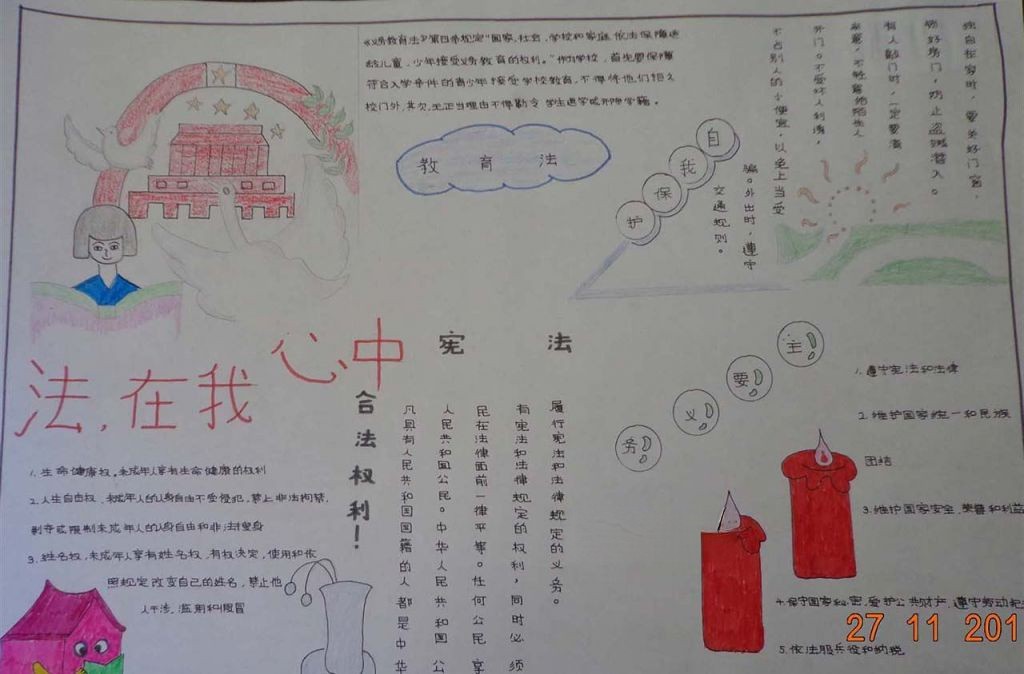 《义务教育法》第四条规定"国家、社会、学校和家庭依法保障适
龄儿童、少年接受义务教育的权利。"作为学校，首先要保障
符合入学条件的青少年接受学校教育，不得将他们拒之
校门外，其次，无正当理由不得勒令学生退学或开除学籍。
教育法
自我保护
独自在家时，要关好门窗，
锁好房门，防止盗贼潜入。
有人敲门时，一定要清
开门。不受坏人利诱，
不占别人的小便宜，以免上当受
骗。外出时，遵守
交通规则。
法，在我心中
宪法
合法权利！
1.生命健康权。未成年人享有生命健康的权利
2.人生自由权，未成年人的人身自由不受侵犯，禁止非法拘禁、
剥夺或限制未成年人的人身自由和非法搜身
3.姓名权，未成年人享有姓名权，有权决定，使用和依
照规定改变自己的姓名，禁止他
人干涉，滥用和假冒
履行宪法和法律规定的义务。
有宪法和法律规定的权利，同时必须
民在法律面前一律平等。任何公民享
人民共和国公民。中华人民共和国公
凡具有人民共和国国籍的人都是中华
主要义务
1.遵守宪法和法律
2.维护国家统一和民族
团结
3.维护国家安全，荣誉和利益
4.保守国家秘密，爱护公共财产，遵守劳动纪
5.依法服兵役和纳税
27 11 201